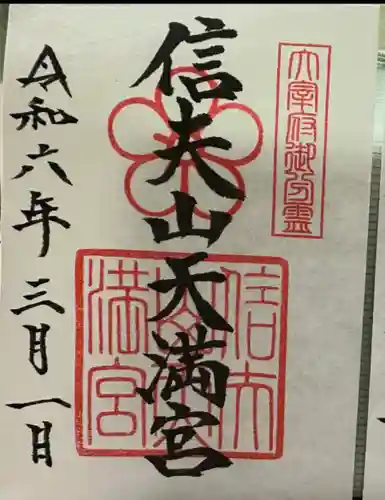 太宰府御分霊
信夫山天満宮
信夫山天満宮
令和六年三月一日